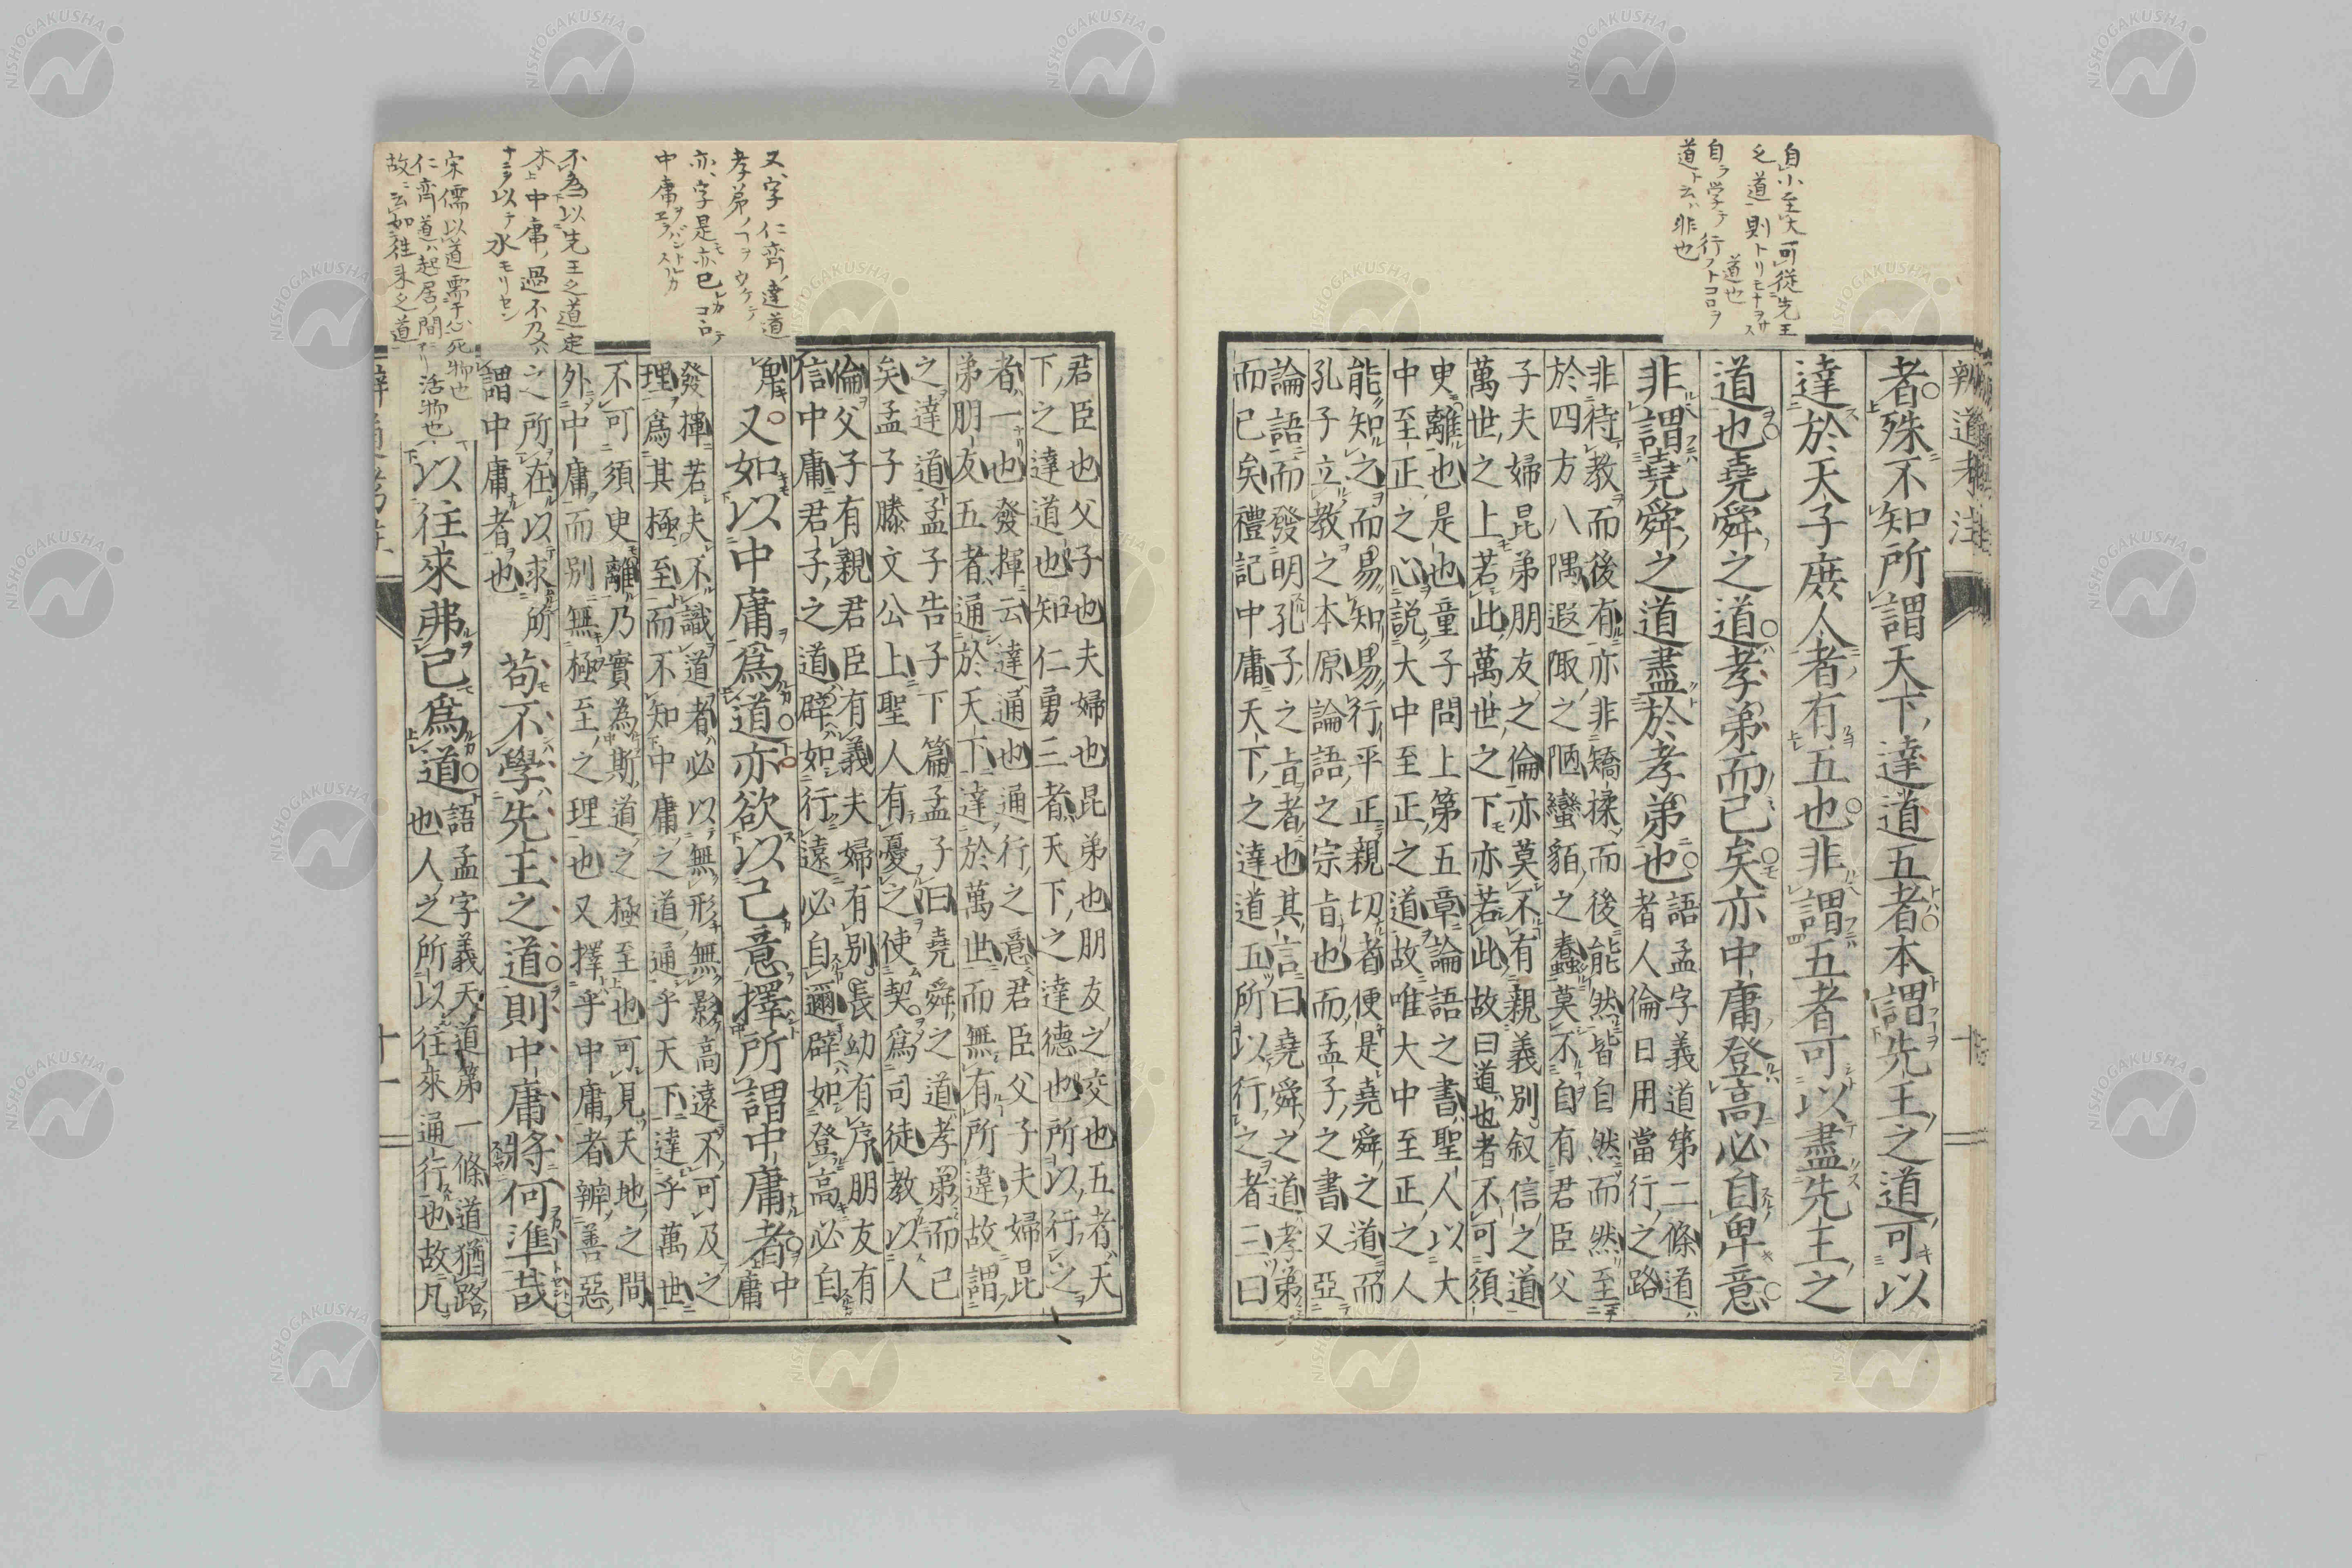 自小至大可從先王
之道則トリモナヲサス
道也
自ラ学テ行フトコロヲ
道ト云ハ非也
辨道考注
者殊不知所謂天下達道五者本謂先王之道可以
達於天子庶人者有五也非謂五者可以盡先王之
道也堯舜之道孝弟而已矣亦中庸登高必自卑意
非謂堯舜之道盡於孝弟也
語孟字義道第二條道
者人倫日用當行之路
非待教而後有亦非矯揉而後能然皆自然而然至
於四方八隅遐陬之陋蠻貊之蠢莫不自有君臣父
子夫婦昆弟朋友之倫亦莫不有親義別叙信之道
萬世之上若此萬世之下亦若此故曰道也者不可須
臾離也是也童子問上第五章論語之書聖人以大
中至正之心說大中至正之道故唯大中至正之人
能知之而易知易行平正親切者便是堯舜之道而
孔子立教之本原論語之宗旨也而孟子之書又亞
論語而發明孔子之旨者也其言曰堯舜之道孝弟
而已矣禮記中庸天下之達道五所以行之者三曰
君臣也父子也夫婦也昆弟也朋友之交也五者天
下之達道也知仁勇三者天下之達德也所以行之
者一也發揮云達通也通行之意君臣父子夫婦昆
弟朋友五者通於天下達於萬世而無有所違故謂
之達道孟子告子下篇孟子曰堯舜之道孝弟而已
矣孟子滕文公上聖人有憂之使契爲司徒教以人
倫父子有親君臣有義夫婦有別長幼有序朋友有
信中庸君子之道辟如行遠必自邇辟如登高必自
卑
又如以中庸爲道亦欲以己意擇所謂中庸者
中
庸
發揮若夫不識道者必以無形無影高遠不可及之
理爲其極至而不知中庸之道通乎天下達乎萬世
不可須臾離乃實為斯道之極至也可見天地之間
外中庸而別無極至之理也又擇乎中庸者辨善惡
之所在以求所
謂中庸者也
苟不學先王之道則中庸將何準哉
以往來弗已爲道
語孟字義天道第一條道猶路
也人之所以往來通行也故凡
又字仁齊達道
孝弟ノコヲウケテ
亦字是モ亦已レカコロテ
中庸ヲエラバントスルカ
不為以先王之道定
木上中庸過不乃ハ
宋儒以道需于心死物也
仁齊道ハ起居ノ間ニアリ活物也
故ニ云如往来之道
十一